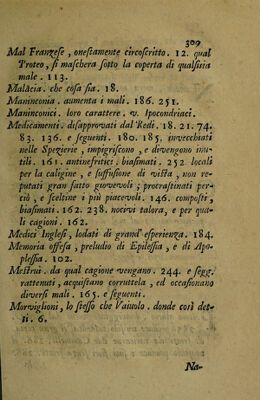 309
Mal Franzese, onestamente circoscritto. 12. qual
Proteo, si maschera sotto la coperta di qualsisia
male. 113.
Malàcia. che cosa sia. 18.
Maninconia. aumenta i mali. 186. 251.
Maninconici. loro carattere. v. Ipocondriaci.
Medicamenti. disapprovati dal Redi. 18. 21. 74.
83. 136. e seguenti. 180. 185. invecchiati
nelle Spezierie, impigriscono, e divengono inu-
tili. 161. antinefritici, biasimati. 252. locali
per la caligine, e suffusione di vista, non re-
putati gran fatto giovevoli; procrastinati per-
ciò, e sceltine i più piacevoli. 146. composti,
biasimati. 162. 238. nocivi talora, e per qua-
li cagioni. 162.
Medici Inglesi, lodati di grand'esperienza. 184.
Memoria offesa, preludio di Epilessia, e di Apo-
plessia. 102.
Mestrui. da qual cagione vengano. 244. e segg.
rattenuti, acquistano corruttela, ed occasionano
diversi mali. 165. e seguenti.
Morviglioni, lo stesso che Vaiuolo. donde così det-
ti. 6.
Na-